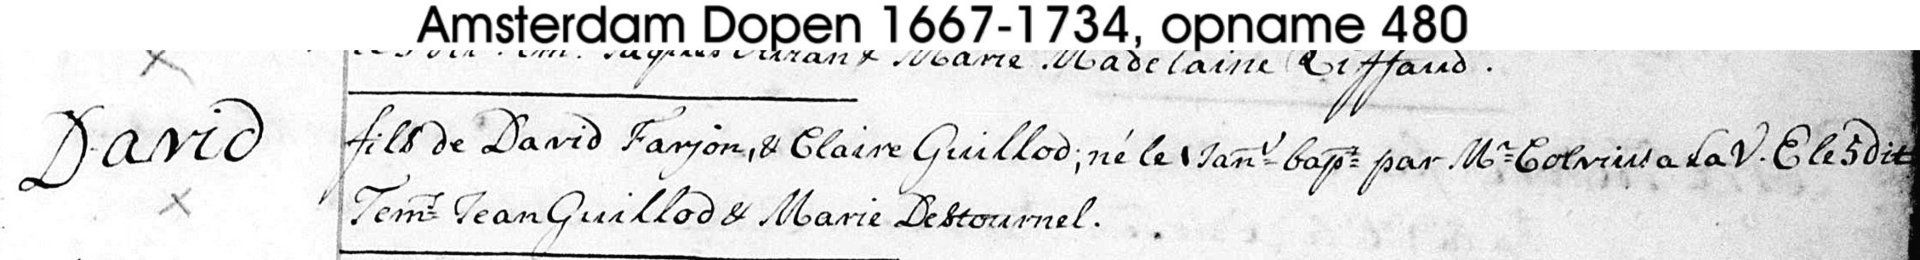 Amsterdam Dopen 1667-1734, opname 480
Marie Madelaine Riffaud.
David
fils de David Farjon, & Claire Guillod; né le 1 Janv.r bap.t par M.r Colvius a La V. E le 5 dit
Tem.s Jean Guillod & Marie Destournel.